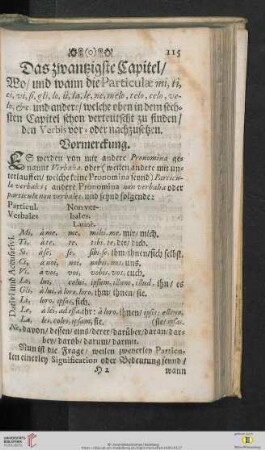 (o) 115
Das zwantzigste Capitel/
Wo/ und wann die Particulæ mi, ti,
ci, vi, si, gli, lo, il, la, le, ne, melo, telo, celo, ve-
lo, &c. und andere/ welche oben in dem sech-
sten Capitel schon verteutscht zu finden/
den Verbis vor- oder nachzusetzen.
Vormerckung.
ES werden von mir andere Pronomina ge-
nannt Verbalia, oder (weilen andere mit un-
terlauffen/ welche keine Pronomina seynd) Particu-
le verbales; andere Pronomina non verbalia oder
particule non verbales: und seynd folgende:
Particul. Non ver-
Verbales bales.
Latinè.
Mi, à me, me, mihi, me, mir, mich.
Ti, à te, te, tibi, te, dir, dich.
Si, à se, se, sibi, se, ihm/ ihnen/ sich selbst.
Ci, à noi, noi, nobis, nos, uns.
Vi, à voi, voi, vobis, vos, euch.
Lo, lui, ipsum, illum, illud, ihn/ es
Gli, à lui, à loro, loro, ihm/ ihnen/ sie.
Li, loro, ipsos, sich.
Le, à lei, ihr: à loro, ihnen/
La, lei, ipsam, sie.
Ne, davon/ dessen/ eins/ derer/ darüber/ daran/ dar-
bey/ darob/ darum/ darmit.
Nun ist die Frage/ weilen zweyerley Particu-
len einerley Signification oder Bedeutung seynd/
H 2 wann